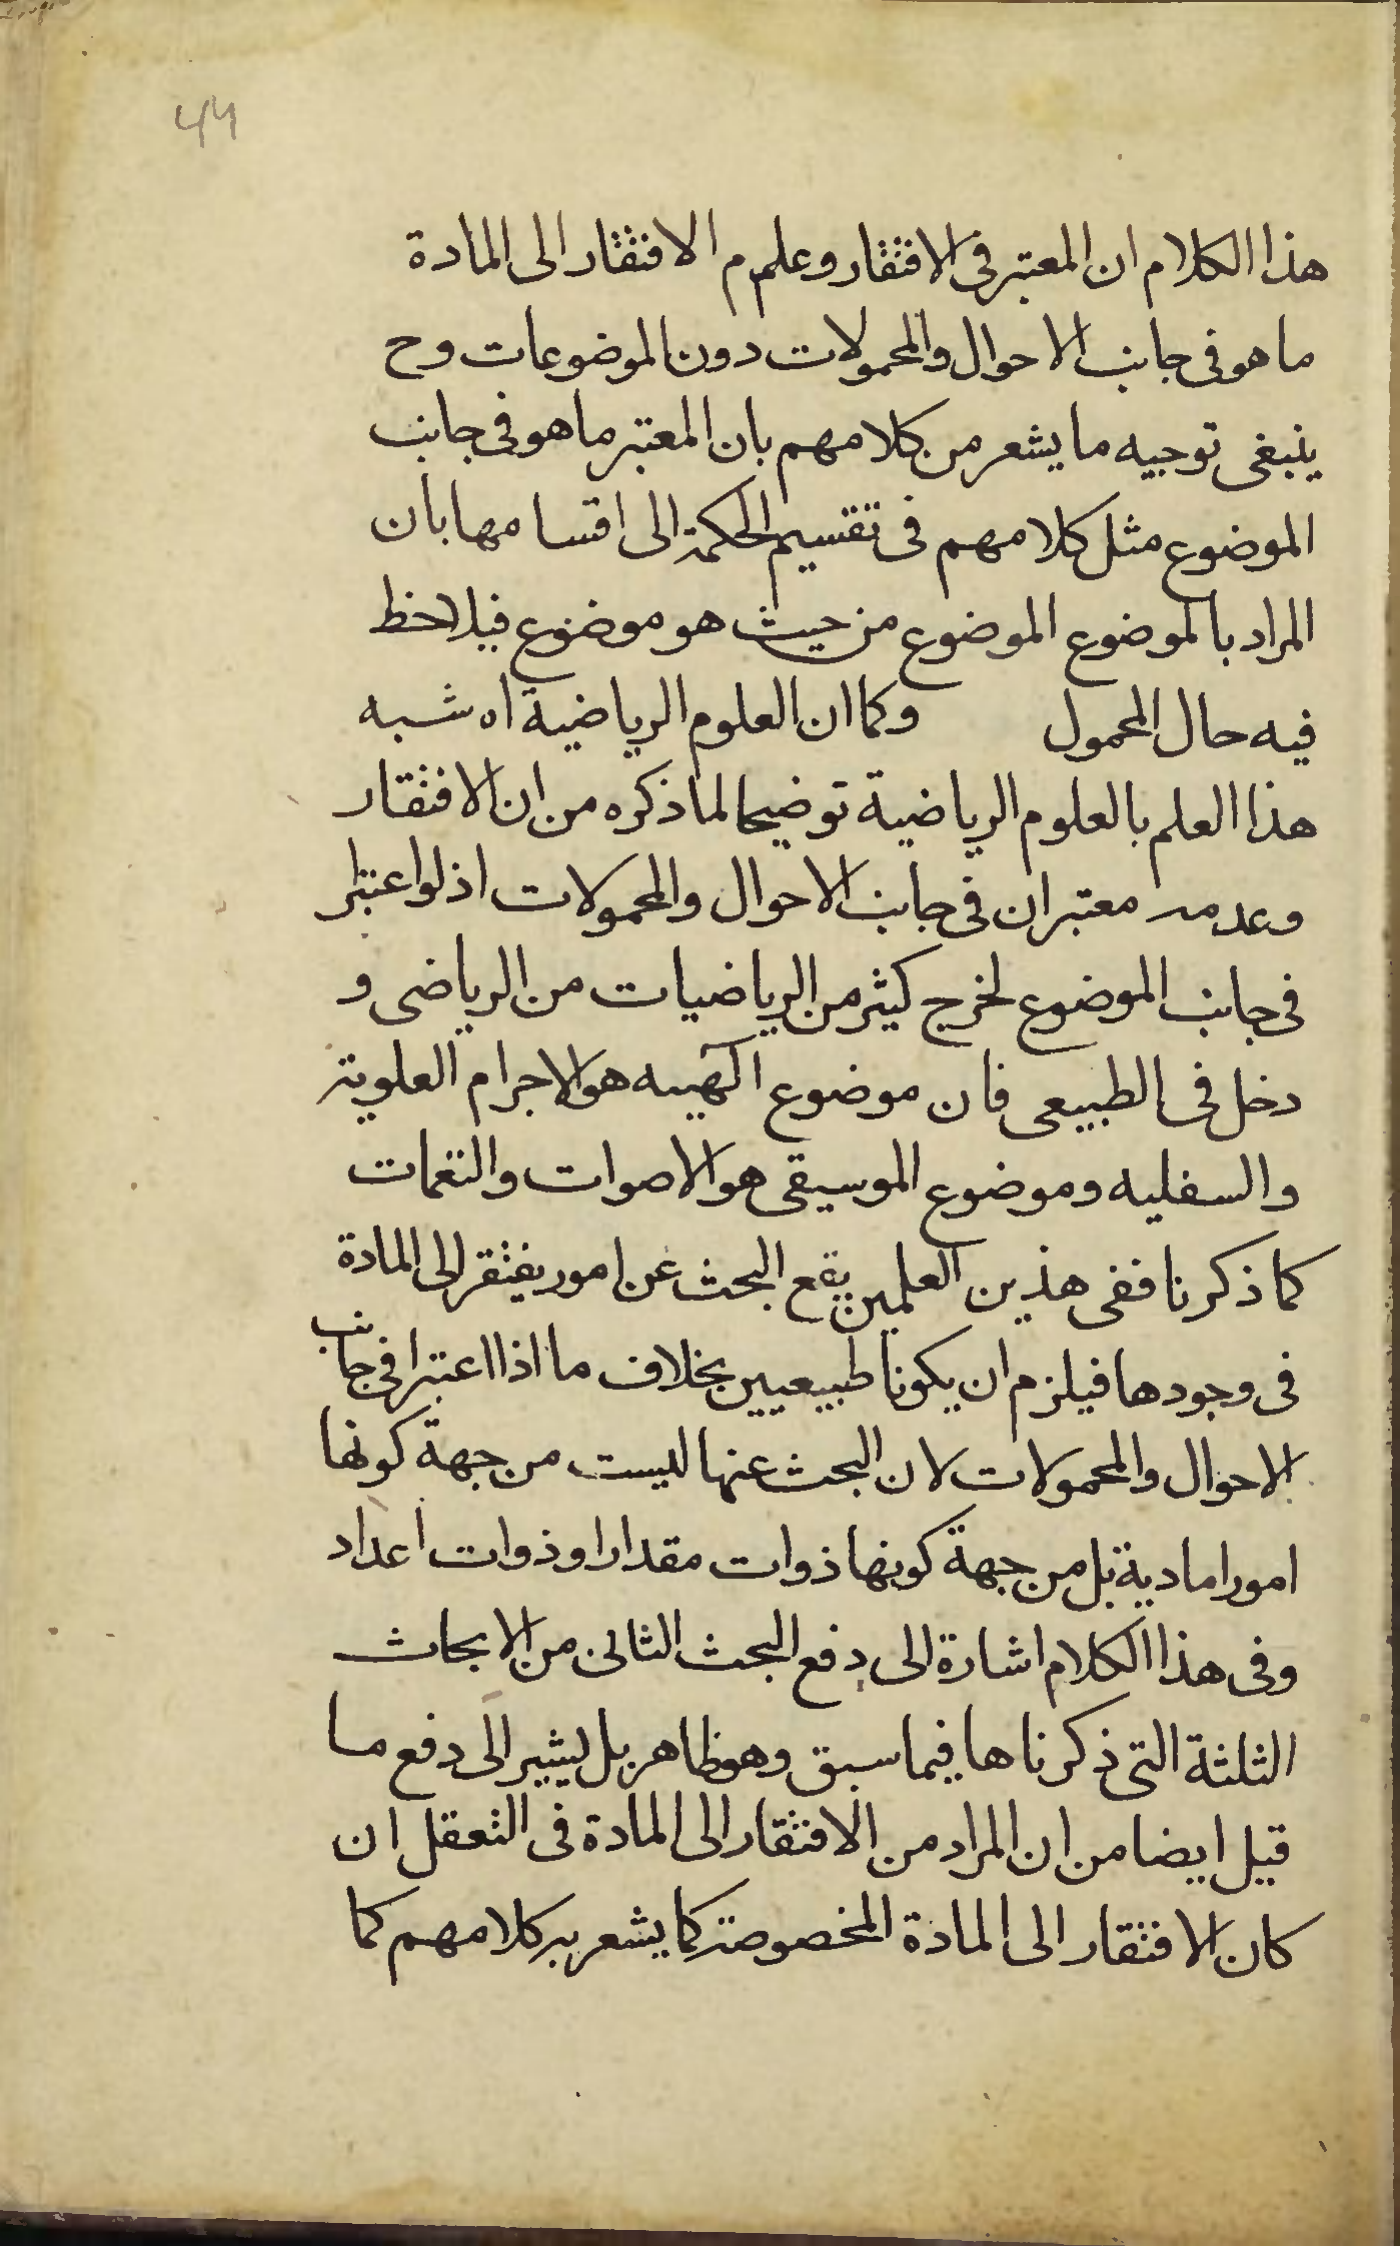 44
هذا الكلام ان المعتبر فى الافتقار وعدم الافتقار الى المادة
ما هو فى جانب الاحوال والمحمولات دون الموضوعات وح
ينبغى توجيه ما يشعر من كلامهم بان المعتبر ما هو فى جانب
الموضوع مثل كلامهم فى تقسيم الحكمة الى اقسامها بان
المراد بالموضوع الموضوع من حيث هو موضوع فيلاحظ
فيه حال المحمول وكما ان العلوم الرياضية اه شبه
هذا العلم بالعلوم الرياضية توضيحا لما ذكره من ان الافتقار
وعدمه معتبران فى جانب الاحوال والمحمولات اذ لو اعتبرا
فى جانب الموضوع لخرج كثير من الرياضيات من الرياضى و
دخل فى الطبيعى فان موضوع الهيئه هو الاجرام العلوية
والسفليه وموضوع الموسيقى هو الاصوات والنغمات
كما ذكرنا ففى هذين العلمين يقع البحث عن امور يفتقر الى المادة
فى وجودها فيلزم ان يكونا طبيعيين بخلاف ما اذا اعتبرا فى جانب
الاحوال والمحمولات لان البحث عنها ليست من جهة كونها
امورا مادية بل من جهة كونها ذوات مقدار او ذوات اعداد
وفى هذا الكلام اشارة الى دفع البحث الثانى من الابحاث
الثلثة التى ذكرناها فيما سبق وهو ظاهر بل يشير الى دفع ما
قيل ايضا من ان المراد من الافتقار الى المادة فى التعقل ان
كان الافتقار الى المادة المخصوصة كما يشعر به كلامهم كما